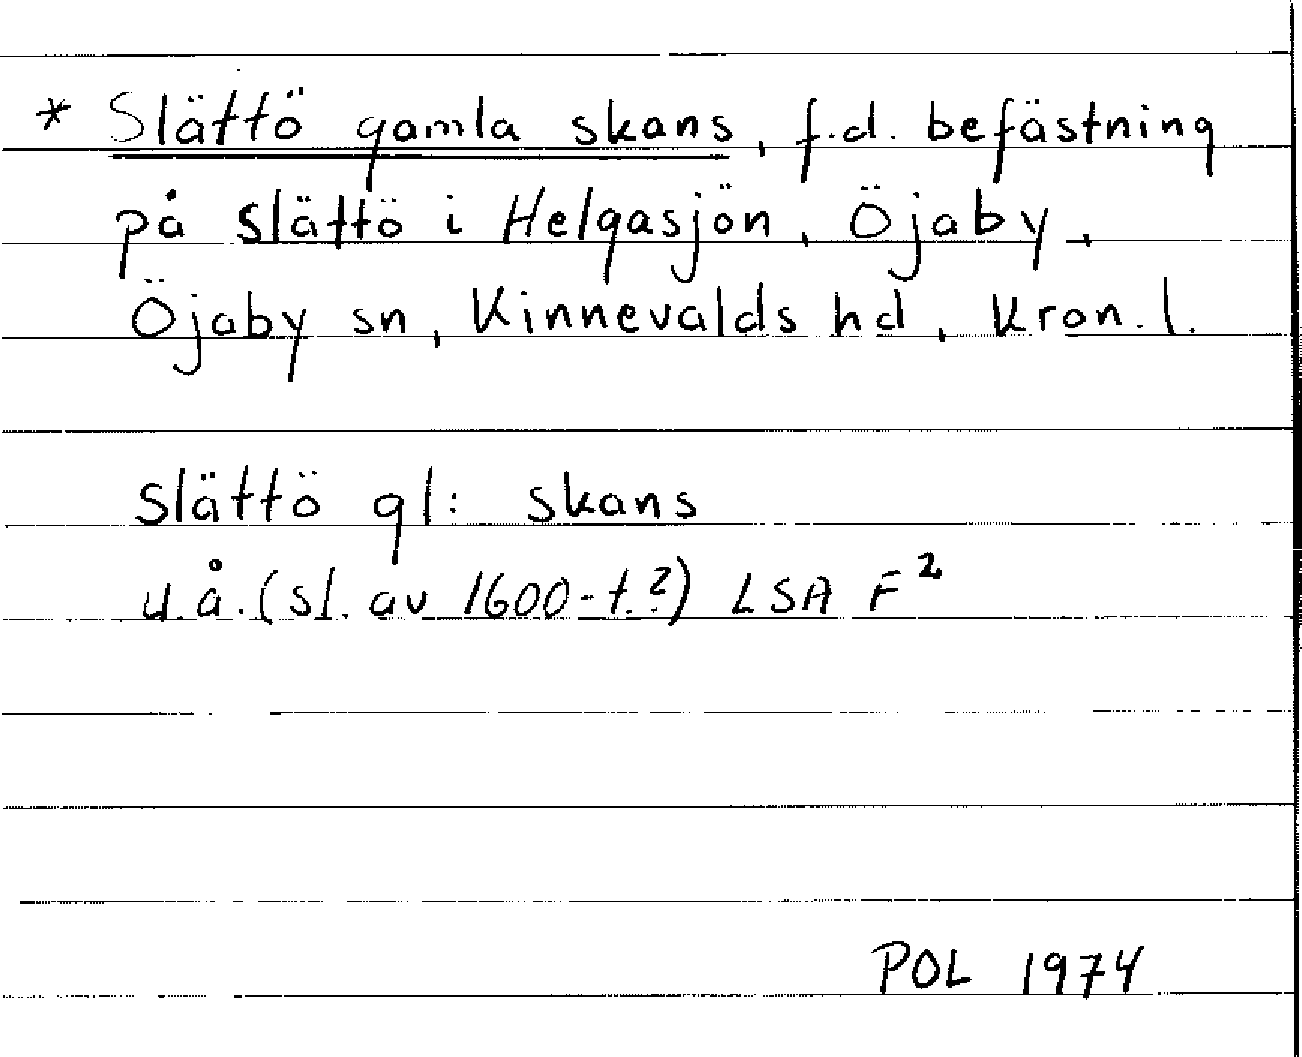 * Slättö gamla skans, f.d. befästning
på Slättö i Helgasjön, Öjaby,
Öjaby sn, Kinnevalds hd, Kron. l.
Slättö gl: skans
u.å. (sl. av 1600-t.?) LSA F²
POL 1974